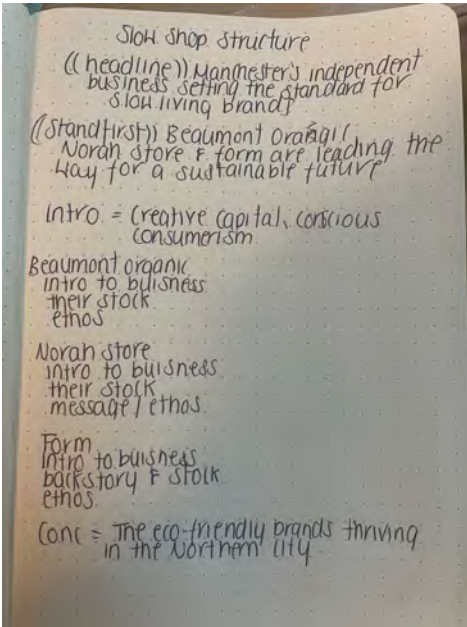 Slow shop structure
((headline)) Manchester's independent
business setting the standard for
slow living brands
((standfirst)) Beaumont Orangic
Norah store & form are leading the
way for a sustainable future
intro = Creative capital, conscious
consumerism
Beaumont organic
intro to buisness
their stock
ethos
Norah store
intro to buisness
their stock
message / ethos
Form
intro to buisness
backstory & stock
ethos
Conc = The eco-friendly brands thriving
in the Northern City